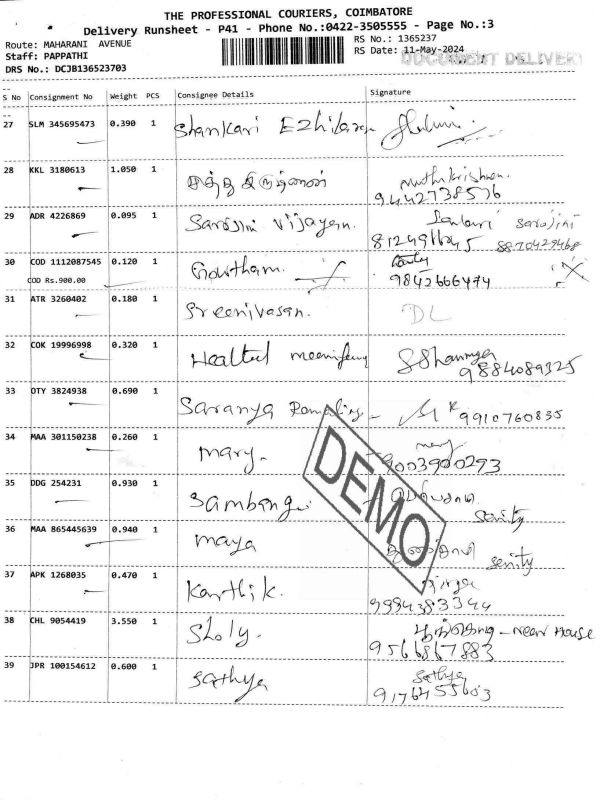 THE PROFESSIONAL COURIERS, COIMBATORE
Delivery Runsheet - P41 - Phone No.:0422-3505555 - Page No.:3
Route: MAHARANI AVENUE
RS No.: 1365237
Staff: PAPPATHI
RS Date: 11-May-2024
DOCUMENT DELIVERY
DRS No.: DCJB136523703
S No Consignment No Weight PCS Consignee Details Signature
27 SLM 345695473 0.390 1 Shankari
28 KKL 3180613 1.050 1 Muthukrishnan
9442738576
29 ADR 4226869 0.095 1 Sarojini Vijayan. Sarojini
30 COD 1112087545 0.120 1 Gowtham.
COD Rs.900.00 9842666474
31 ATR 3260402 0.180 1 Sreenivasan. DL
32 COK 19996998 0.320 1
9884089325
33 OTY 3824938 0.690 1 Saranya 9910760835
34 MAA 301150238 0.260 1 mary. mary
9003900293
35 DDG 254231 0.930 1
36 MAA 865445639 0.940 1 maya
37 APK 1268035 0.470 1 Karthik.
9994383344
38 CHL 9054419 3.550 1 Sholy. - Near House
9566867883
39 JPR 100154612 0.600 1 Sathya Sathya
DEMO